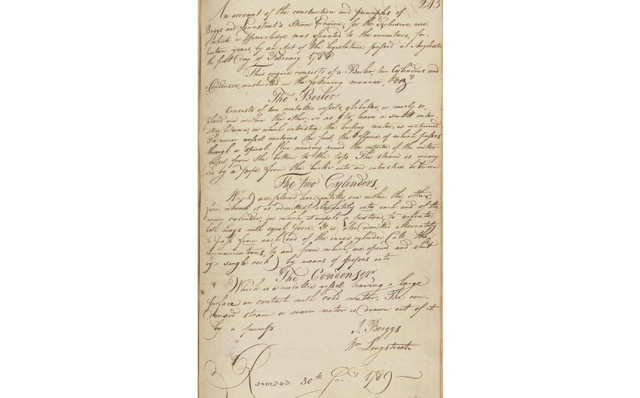 243
An account of the construction and principles of
Briggs and Longstreet's Steam Engine, for the Exclusive use
of which a
was granted to the inventors, for
fourteen years, by an Act of the Legislature, passed at Augusta
the first Day of February 1788
This engine consists of a Boiler, two Cylinders and
Condensor, constructed in the following manner,
The Boiler
Consists of two metallic vessels, globular, or nearly so,
placed one within the other, so as to have a small
in which
the boiling water,
The inner vessel contains the fuel, the
of which passes
through a spiral flue winding round the outside of the outer
vessel from the bottom to the top. The steam is
by a pipe from the boiler into an interstice between
The two Cylinders,
Which are placed horizontally one within the other
from whence it is admitted alternately into each end of the
inner cylinder, in which it impels a piston, to operate
both ways with equal force. It is also admitted alternately
to pass from each end of the inner cylinder (both the
communications, to and from which, are opened and shut
by a single cock) by means of pipes into
The Condensor,
Which is a metallic vessel, having a large
surface in contact with cold water. The con
densed steam or warm water is drawn out of it
by a pump
J. Briggs
Wm Longstreet.
Recorded 30th Jany 1789